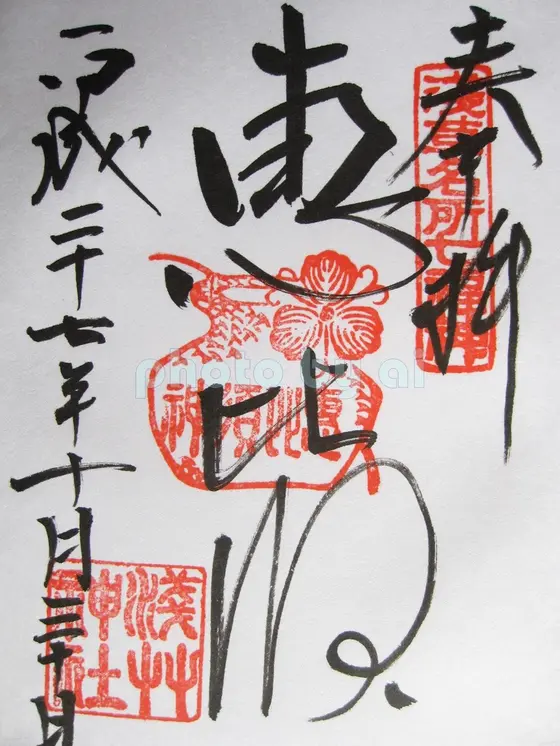 奉拝
浅草名所七福神
恵比須
恵比須神
平成二十七年十月三十日
淺草神社
photo by al